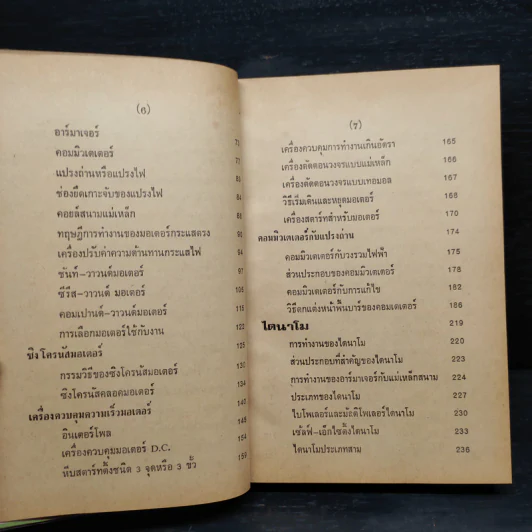 (6)
อาร์มาเจอร์
คอมมิวเตเตอร์
แปรงถ่านหรือแปรงไฟ
ช่องยึดเกาะจับของแปรงไฟ
คอยล์สนามแม่เหล็ก
ทฤษฎีการทำงานของมอเตอร์กระแสตรง
เครื่องปรับค่าความต้านทานกระแสไฟ
ชันท์-วาวนด์มอเตอร์
ซีรีส-วาวนด์ มอเตอร์
คอมเปานด์-วาวนด์มอเตอร์
การเลือกมอเตอร์ใช้กับงาน
ซิงโครนัสมอเตอร์
กรรมวิธีของซิงโครนัสมอเตอร์
ซิงโครนัสคลอคมอเตอร์
เครื่องควบคุมความเร็วมอเตอร์
อินเตอร์โพล
เครื่องควบคุมมอเตอร์ D.C.
หีบสตาร์ทตั้งชนิด 3 จุดหรือ 3 ขั้ว
(7)
เครื่องควบคุมการทำงานเกินอัตรา 165
เครื่องตัดตอนวงจรแบบแม่เหล็ก 166
เครื่องตัดตอนวงจรแบบเทอมอล 167
วิธีเริ่มเดินและหยุดมอเตอร์ 168
เครื่องสตาร์ทสำหรับมอเตอร์ 170
คอมมิวเตเตอร์กับแปรงถ่าน 174
คอมมิวเตเตอร์กับวงรวมไฟฟ้า 175
ส่วนประกอบของคอมมิวเตเตอร์ 178
คอมมิวเตเตอร์กับการแก้ไข 182
วิธีตกแต่งหน้าพื้นบาร์ของคอมเตเตอร์ 186
ไดนาโม 219
การทำงานของไดนาโม 220
ส่วนประกอบที่สำคัญของไดนาโม 223
การทำงานของอาร์มาเจอร์กับแม่เหล็กสนาม 224
ประเภทของไดนาโม 227
ไบโพลเลอร์และมัลติโพเลอร์ไดนาโม 230
เซ้ลฟ์-เอ็กไซติ้งไดนาโม 233
ไดนาโมประเภทสาม 236